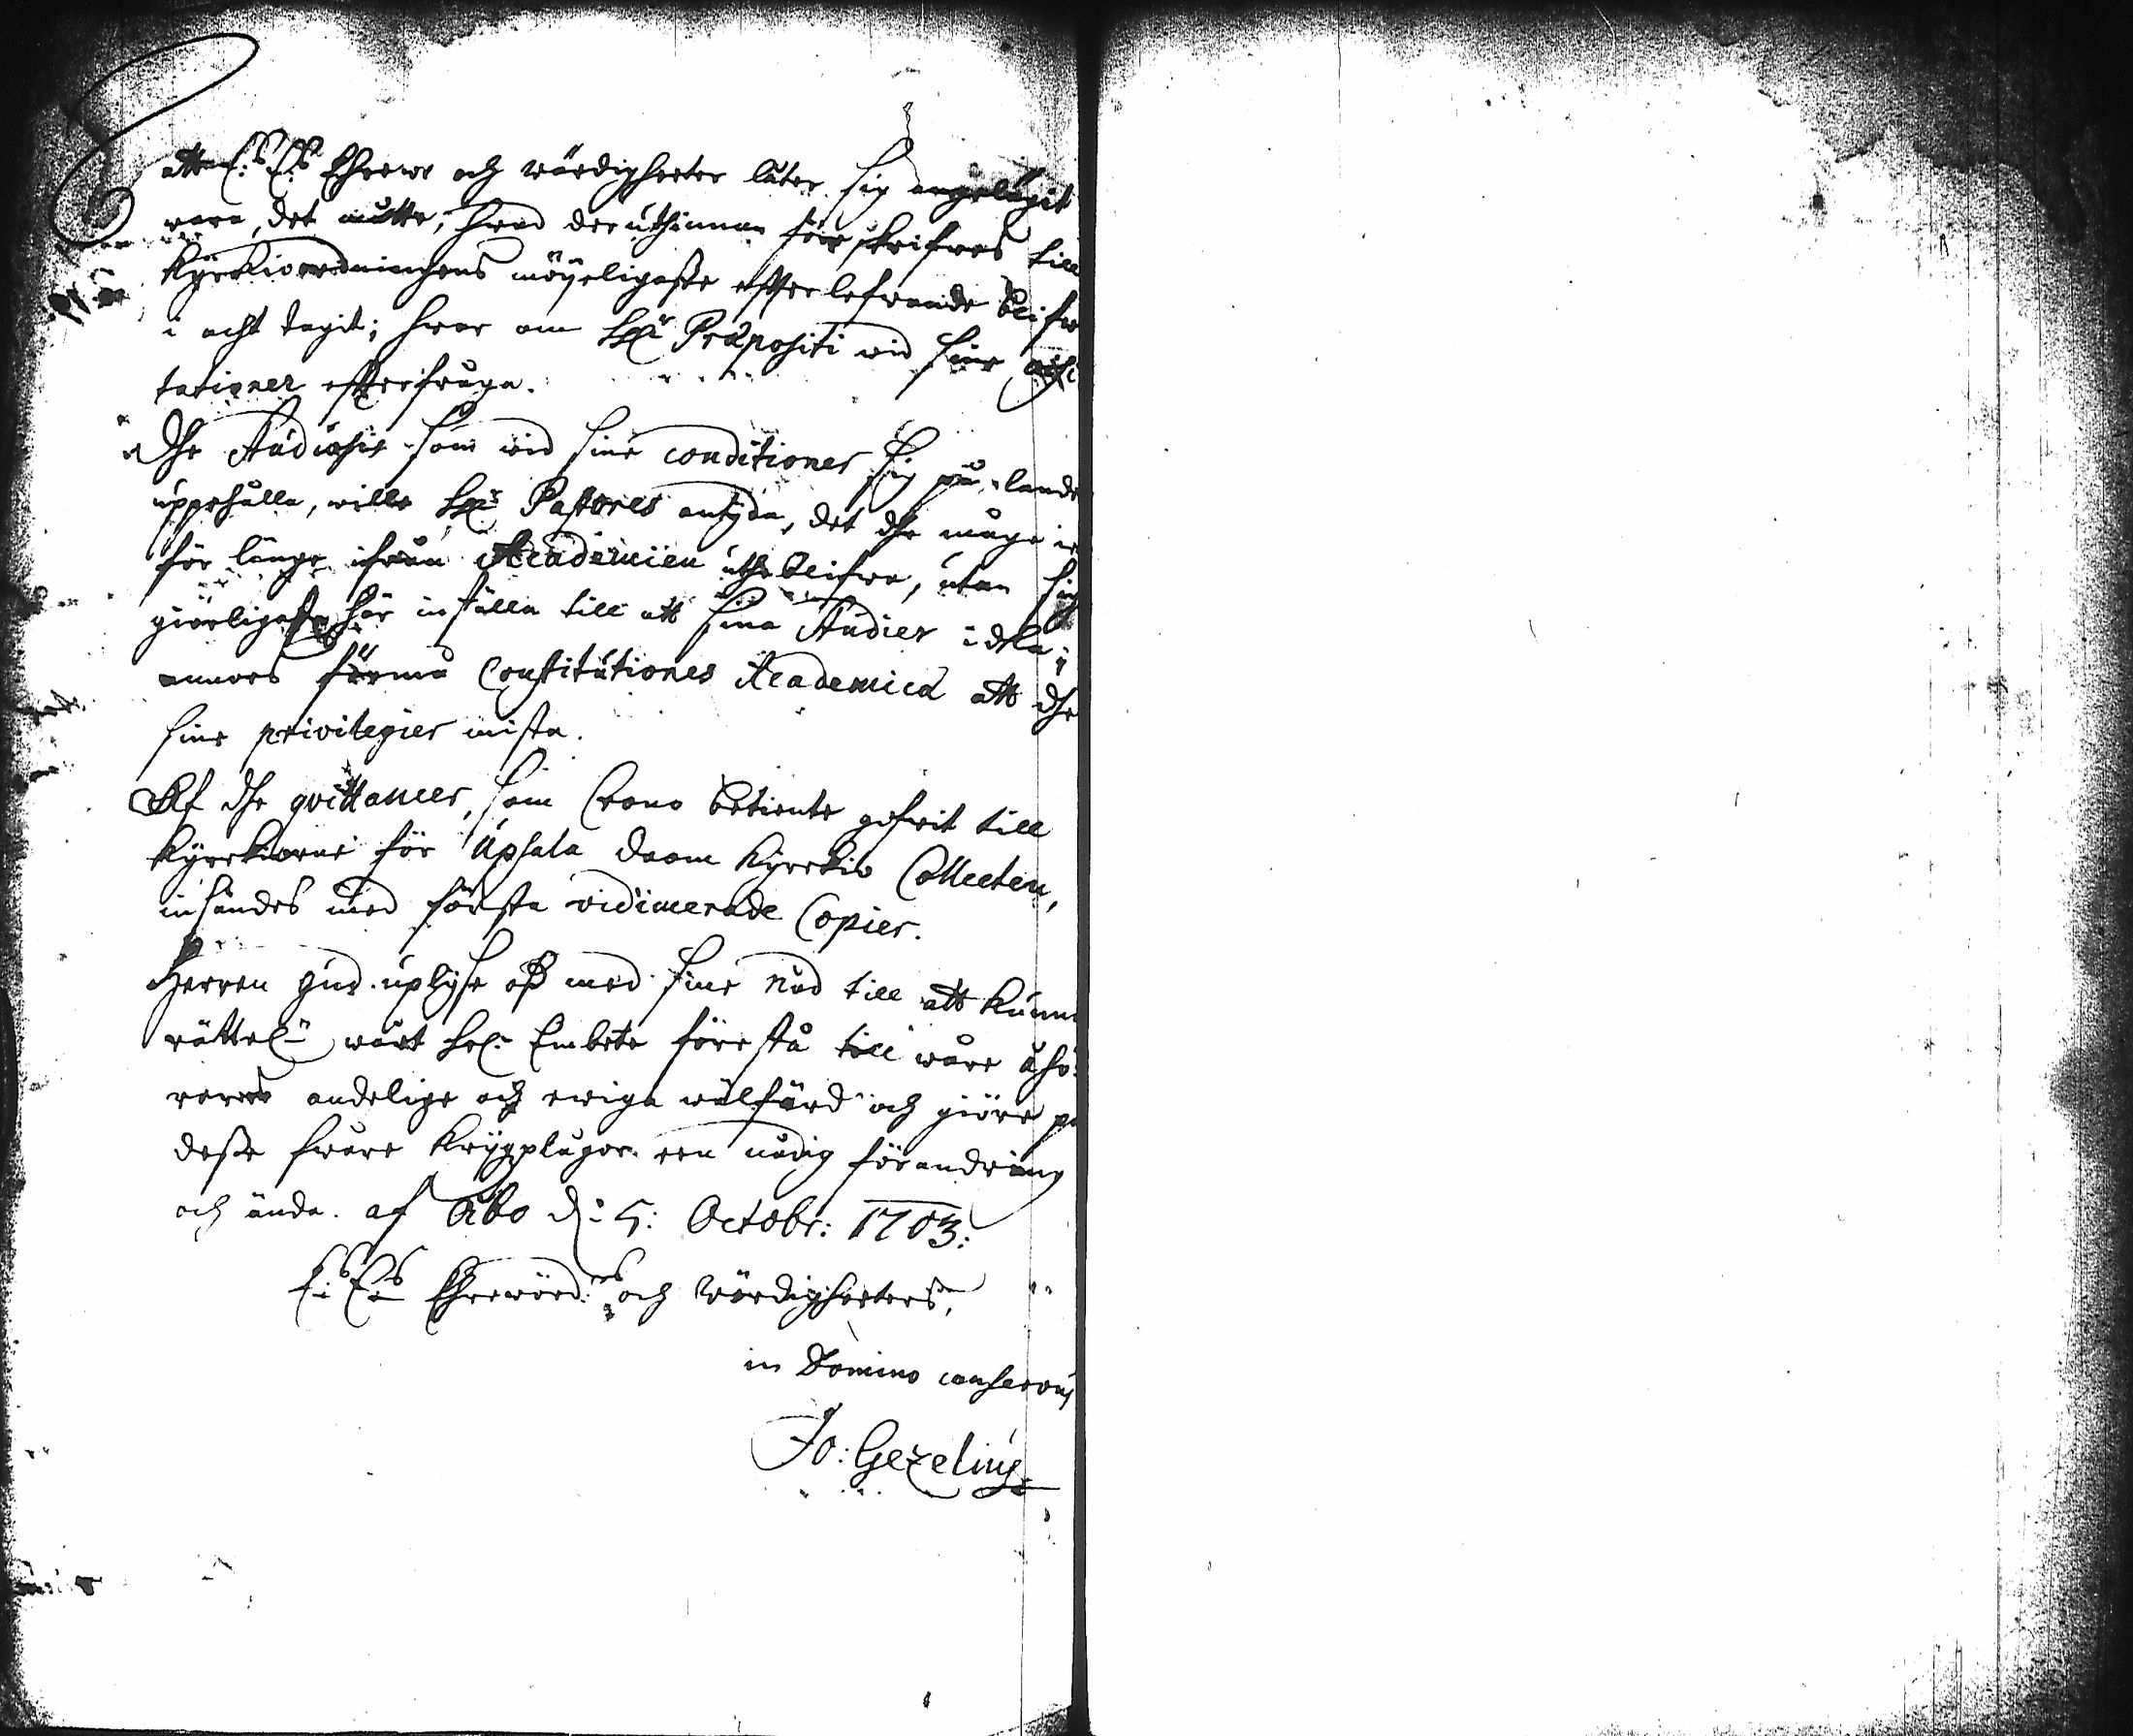 att E:s E:s Ehrewr och wärdigheeter låter sig angelägit
wara, det måtte, hwad der uthinnan för skrifwes till
Kyrkioordninghens möyeligaste effterlefwande blifwa
i acht tagit; hwar om H:r Præpositi wid sine visi
tationer effterfråga.
Dhe Studiosis som wid sine conditioner sig på lande
uppehålla, wille H:r Pastores antyda, det dhe måge ei
för länge ifrån Academien uthe blifwa, utan sig
giörligaste här inställa till att sina Studier idka;
annors förmå Constitutiones Academicæ att dhe
sine privilegier mista.
Af dhe qvittancer, som Crono betiente gifwit till
Kyrkiorne för Upsala doom Kyrkio Collecten,
insändes med första vidimerade Copier.
Herren Gud uplyse oß med sine nåd till att kunna
rättel: wårt hel: Embete förestå till wåre åhö
rares andelige och ewiga wälfärd och giöre på
deße swåre krygzplågor een nådig förandring
och ända. af Åbo d: 5: Octobr: 1703:
E:s E:s Ehrewörd: och Wördigheeters,
in Domino conservus
Jo: Gezelius